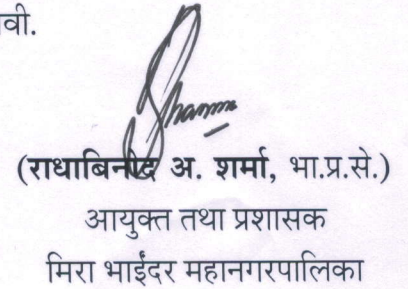 वी.
Sharma
(राधाबिनोद अ. शर्मा, भा.प्र.से.)
आयुक्त तथा प्रशासक
मिरा भाईंदर महानगरपालिका